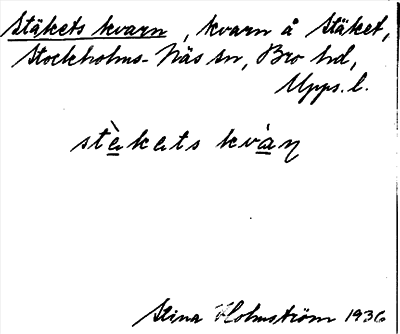 Stäkets kvarn, kvarn å Stäket,
Stockholms-Näs sn, Bro hd,
Upps. l.
stὲkɐts kvàɳ
Stina Holmström 1936